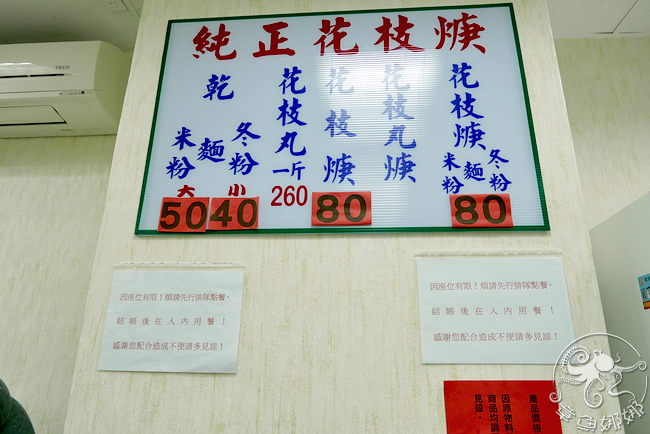 純正花枝焿
花枝焿
米粉 麵 冬粉
80
花枝丸焿
花枝焿
80
花枝丸一斤
260
乾
米粉 麵 冬粉
大 小
50 40
因座位有限！煩請先行排隊點餐，
結帳後在入內用餐！
感謝您配合造成不便請多見諒！
因座位有限！煩請先行排隊點餐，
結帳後在入內用餐！
感謝您配合造成不便請多見諒！
產品價格
因原物料
商品均調
見諒。
TECO
章魚娜娜